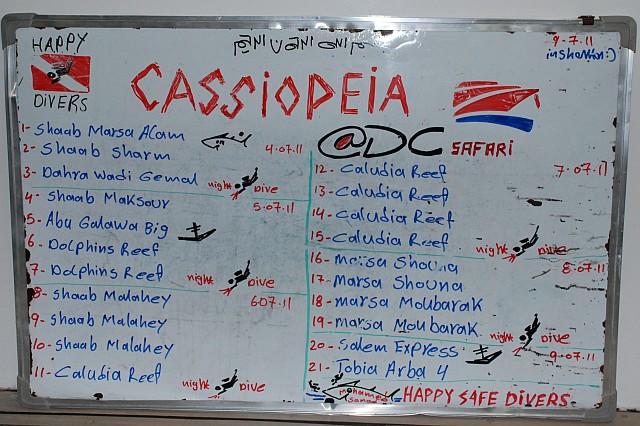 HAPPY
DIVERS
9-7.11
inshallah:)
CASSIOPEIA
@DC SAFARI
1- Shaab Marsa Alam
2- Shaab Sharm
4.07.11
3- Dahra Wadi Gemal
night Dive
4- Shaab Maksour
5.07.11
5- Abu Galawa Big
6- Dolphins Reef
7- Dolphins Reef
night Dive
8- Shaab Malahey
6.07.11
9- Shaab Malahey
10- Shaab Malahey
11- Caludia Reef
night Dive
12- Caludia Reef
7-07.11
13- Caludia Reef
14- Caludia Reef
15- Caludia Reef
night Dive
16- Marsa Shouna
8-07.11
17- Marsa Shouna
18- marsa Moubarak
19- marsa Moubarak
night Dive
20- Salem Express
9-07.11
21- Tobia Arba 4
Mohamed
HAPPY SAFE DIVERS